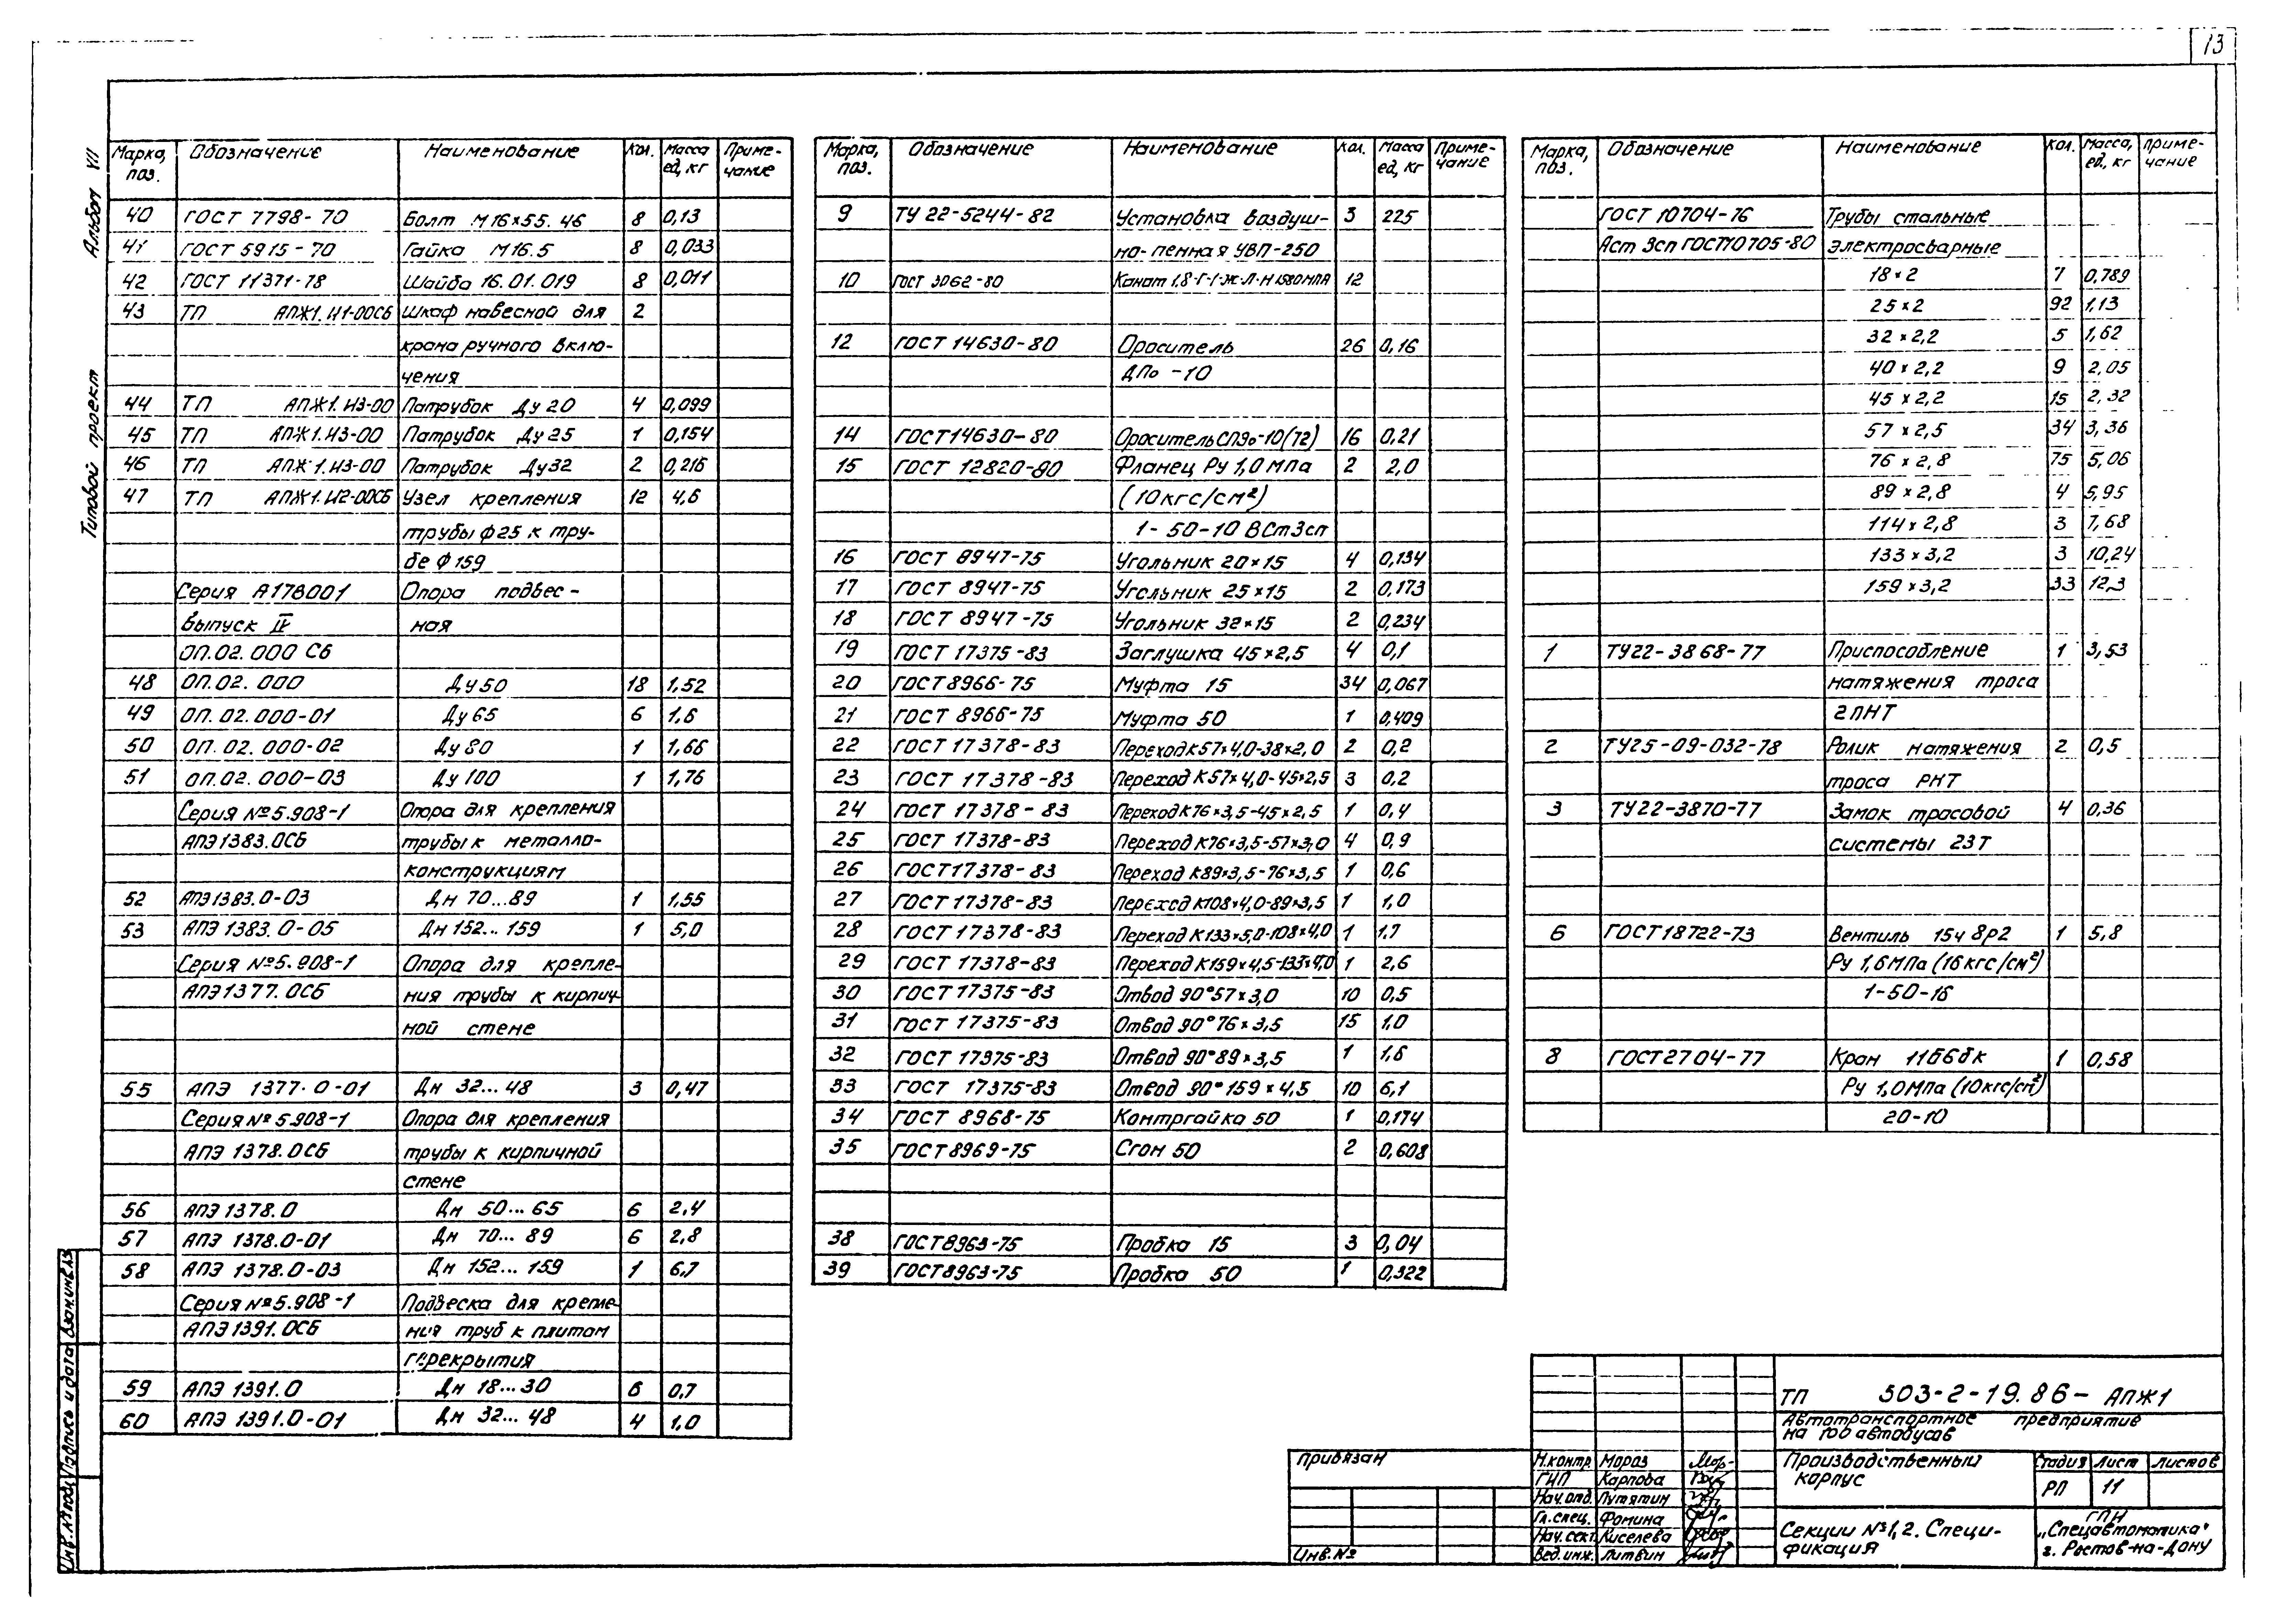 13
Альбом VII
Типовой проект
Марка, поз. Обозначение Наименование Кол. Масса ед, кг Приме-чание
40 ГОСТ 7798-70 Болт М16×55.46 8 0,13
41 ГОСТ 5915-70 Гайка М16.5 8 0,033
42 ГОСТ 11371-78 Шайба 16.01.019 8 0,011
43 ТП АПЖ1.И1-00СБ Шкаф навесной для 2
крана ручного вклю-
чения
44 ТП АПЖ1.И3-00 Патрубок Ду 20 4 0,099
45 ТП АПЖ1.И3-00 Патрубок Ду 25 1 0,154
46 ТП АПЖ1.И3-00 Патрубок Ду32 2 0,216
47 ТП АПЖ1.И2-00СБ Узел крепления 12 4,6
трубы ф25 к тру-
бе ф159
Серия А17В001 Опора подвес-
выпуск IV ная
ОП.02.000 Сб
48 ОП.02.000 Ду 50 18 1,52
49 ОП.02.000-01 Ду 65 6 1,6
50 ОП.02.000-02 Ду 80 1 1,66
51 ОП.02.000-03 Ду 100 1 1,76
Серия №5.908-1 Опора для крепления
АПЭ1383.0СБ трубы к металло-
конструкциям
52 АПЭ1383.0-03 Дн 70...89 1 1,55
53 АПЭ 1383.0-05 Дн 152...159 1 5,0
Серия №5.908-1 Опора для крепле-
АПЭ1377.0СБ ния трубы к кирпич-
ной стене
55 АПЭ 1377.0-01 Дн 32...48 3 0,47
Серия №5.908-1 Опора для крепления
АПЭ 1378.0СБ трубы к кирпичной
стене
56 АПЭ 1378.0 Дн 50...65 6 2,4
57 АПЭ 1378.0-01 Дн 70...89 6 2,8
58 АПЭ 1378.0-03 Дн 152...159 1 6,7
Серия №5.908-1 Подвеска для крепле-
АПЭ1391.0СБ ния труб к плитам
перекрытия
59 АПЭ 1391.0 Дн 18...30 6 0,7
60 АПЭ 1391.0-01 Дн 32...48 4 1,0
Марка, поз. Обозначение Наименование Кол. Масса ед, кг Приме-чание
9 ТУ 22-5244-82 Установка воздуш- 3 225
но-пенная УВП-250
10 ГОСТ 3062-80 Канат 1,8-Г-I-Ж-Л-Н 1580МПА 12
12 ГОСТ 14630-80 Ороситель 26 0,16
ДПо -10
14 ГОСТ14630-80 Ороситель СПЭо-10(72) 16 0,21
15 ГОСТ 12820-80 Фланец Ру 1,0 мпа 2 2,0
(10кгс/см²)
1-50-10 ВСт3сп
16 ГОСТ 8947-75 Угольник 20×15 4 0,134
17 ГОСТ 8947-75 Угольник 25×15 2 0,173
18 ГОСТ 8947-75 Угольник 32×15 2 0,234
19 ГОСТ 17375-83 Заглушка 45×2,5 4 0,1
20 ГОСТ8966-75 Муфта 15 34 0,067
21 ГОСТ 8966-75 Муфта 50 1 0,409
22 ГОСТ 17378-83 Переход К57×4,0-38×2,0 2 0,2
23 ГОСТ 17378-83 Переход К57×4,0-45×2,5 3 0,2
24 ГОСТ 17378-83 Переход К76×3,5-45×2,5 1 0,4
25 ГОСТ 17378-83 Переход К76×3,5-57×3,0 4 0,9
26 ГОСТ17378-83 Переход К89×3,5-76×3,5 1 0,6
27 ГОСТ 17378-83 Переход К108×4,0-89×3,5 1 1,0
28 ГОСТ 17378-83 Переход К133×5,0-108×4,0 1 1,7
29 ГОСТ 17378-83 Переход К159×4,5-133×4,0 1 2,6
30 ГОСТ 17375-83 Отвод 90°57×3,0 10 0,5
31 ГОСТ 17375-83 Отвод 90°76×3,5 15 1,0
32 ГОСТ 17375-83 Отвод 90°89×3,5 1 1,6
33 ГОСТ 17375-83 Отвод 90°159×4,5 10 6,1
34 ГОСТ 8968-75 Контргайка 50 1 0,174
35 ГОСТ8969-75 Сгон 50 2 0,608
38 ГОСТ8963-75 Пробка 15 3 0,04
39 ГОСТ8963-75 Пробка 50 1 0,322
Марка, поз. Обозначение Наименование Кол. Масса, ед, кг Приме-чание
ГОСТ 10704-76 Трубы стальные
Аст 3сп ГОСТ10705-80 электросварные
18×2 7 0,789
25×2 92 1,13
32×2,2 5 1,62
40×2,2 9 2,05
45×2,2 15 2,32
57×2,5 34 3,36
76×2,8 75 5,06
89×2,8 4 5,95
114×2,8 3 7,68
133×3,2 3 10,24
159×3,2 33 12,3
1 ТУ22-3868-77 Приспособление 1 3,53
натяжения троса
2ПНТ
2 ТУ25-09-032-78 Ролик натяжения 2 0,5
троса РНТ
3 ТУ22-3870-77 Замок тросовой 4 0,36
системы 23Т
6 ГОСТ18722-73 Вентиль 15ч 8р2 1 5,8
Ру 1,6МПа (16кгс/см²)
1-50-16
8 ГОСТ2704-77 Кран 11Б6бк 1 0,58
Ру 1,0МПа (10кгс/см²)
20-10
ТП 503-2-19.86- АПЖ1
Автотранспортное предприятие
на 100 автобусов
Производственный
корпус
Стадия Лист Листов
РП 11
Секции №1,2. Специ-
фикация
ГПН
„Спецавтоматика"
г. Ростов-на-Дону
Привязан
Инв.№
Н.контр. Мороз
ГИП Карпова
Нач.отд. Путятин
Гл.спец. Фомина
Нач.сект. Киселева
Вед.инж. Литвин
Инв.№подл. Подпись и дата Взам.инв.№